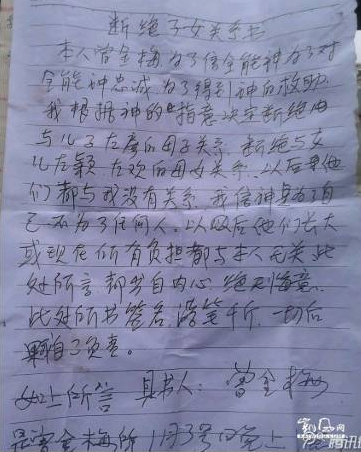 断绝子女关系书
本人曾金梅为了信全能神为了对
全能神忠诚为了得到神的救助
我根据神的指意决定断绝由
与儿子左彦的母子关系 断绝与女
儿左颖 左欢的母女关系 以后里他
们都与我没有关系 我信神是为了自
己不为了任何人 以后他们长大
或现在所有负担都与本人无关 此
处所言 都发自内心 绝不悔意
此处所书签名 落笔千斤 一切后
果自己负责。
如上所言 具书人：曾金梅
是曾金梅所 1月3号 晚上
腾讯